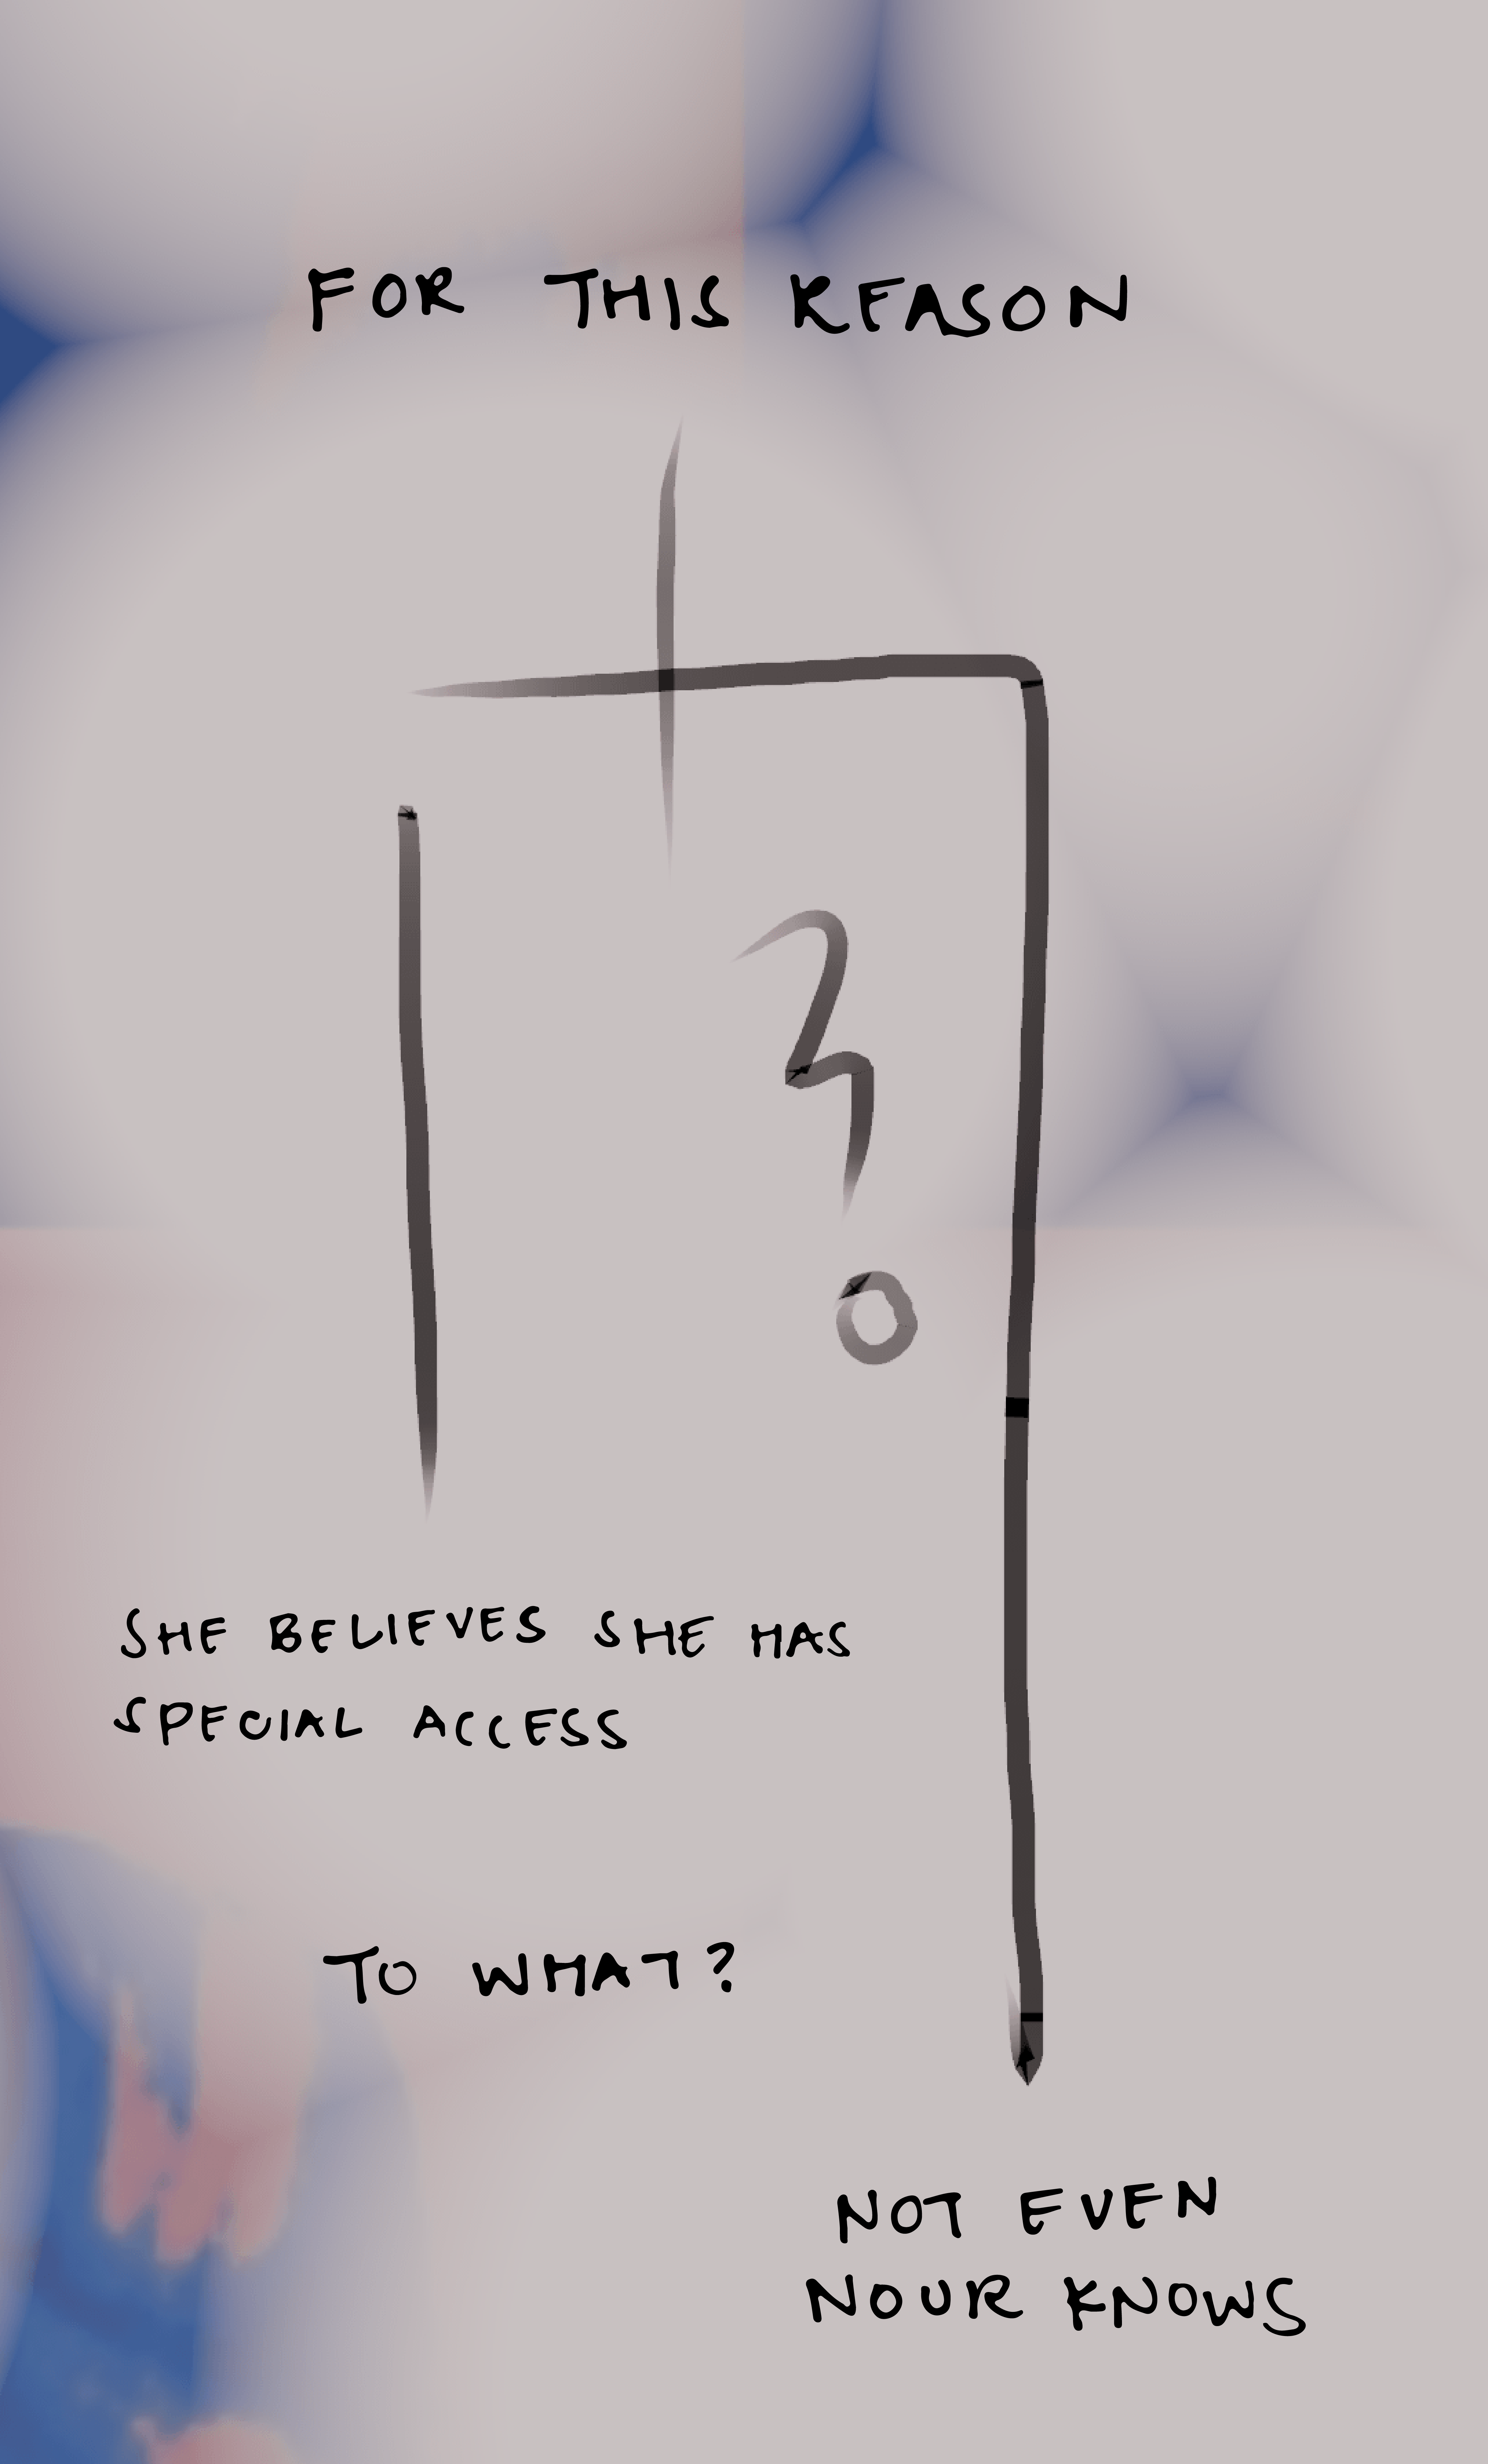 FOR THIS REASON
SHE BELIEVES SHE HAS
SPECIAL ACCESS
TO WHAT?
NOT EVEN
NOUR KNOWS